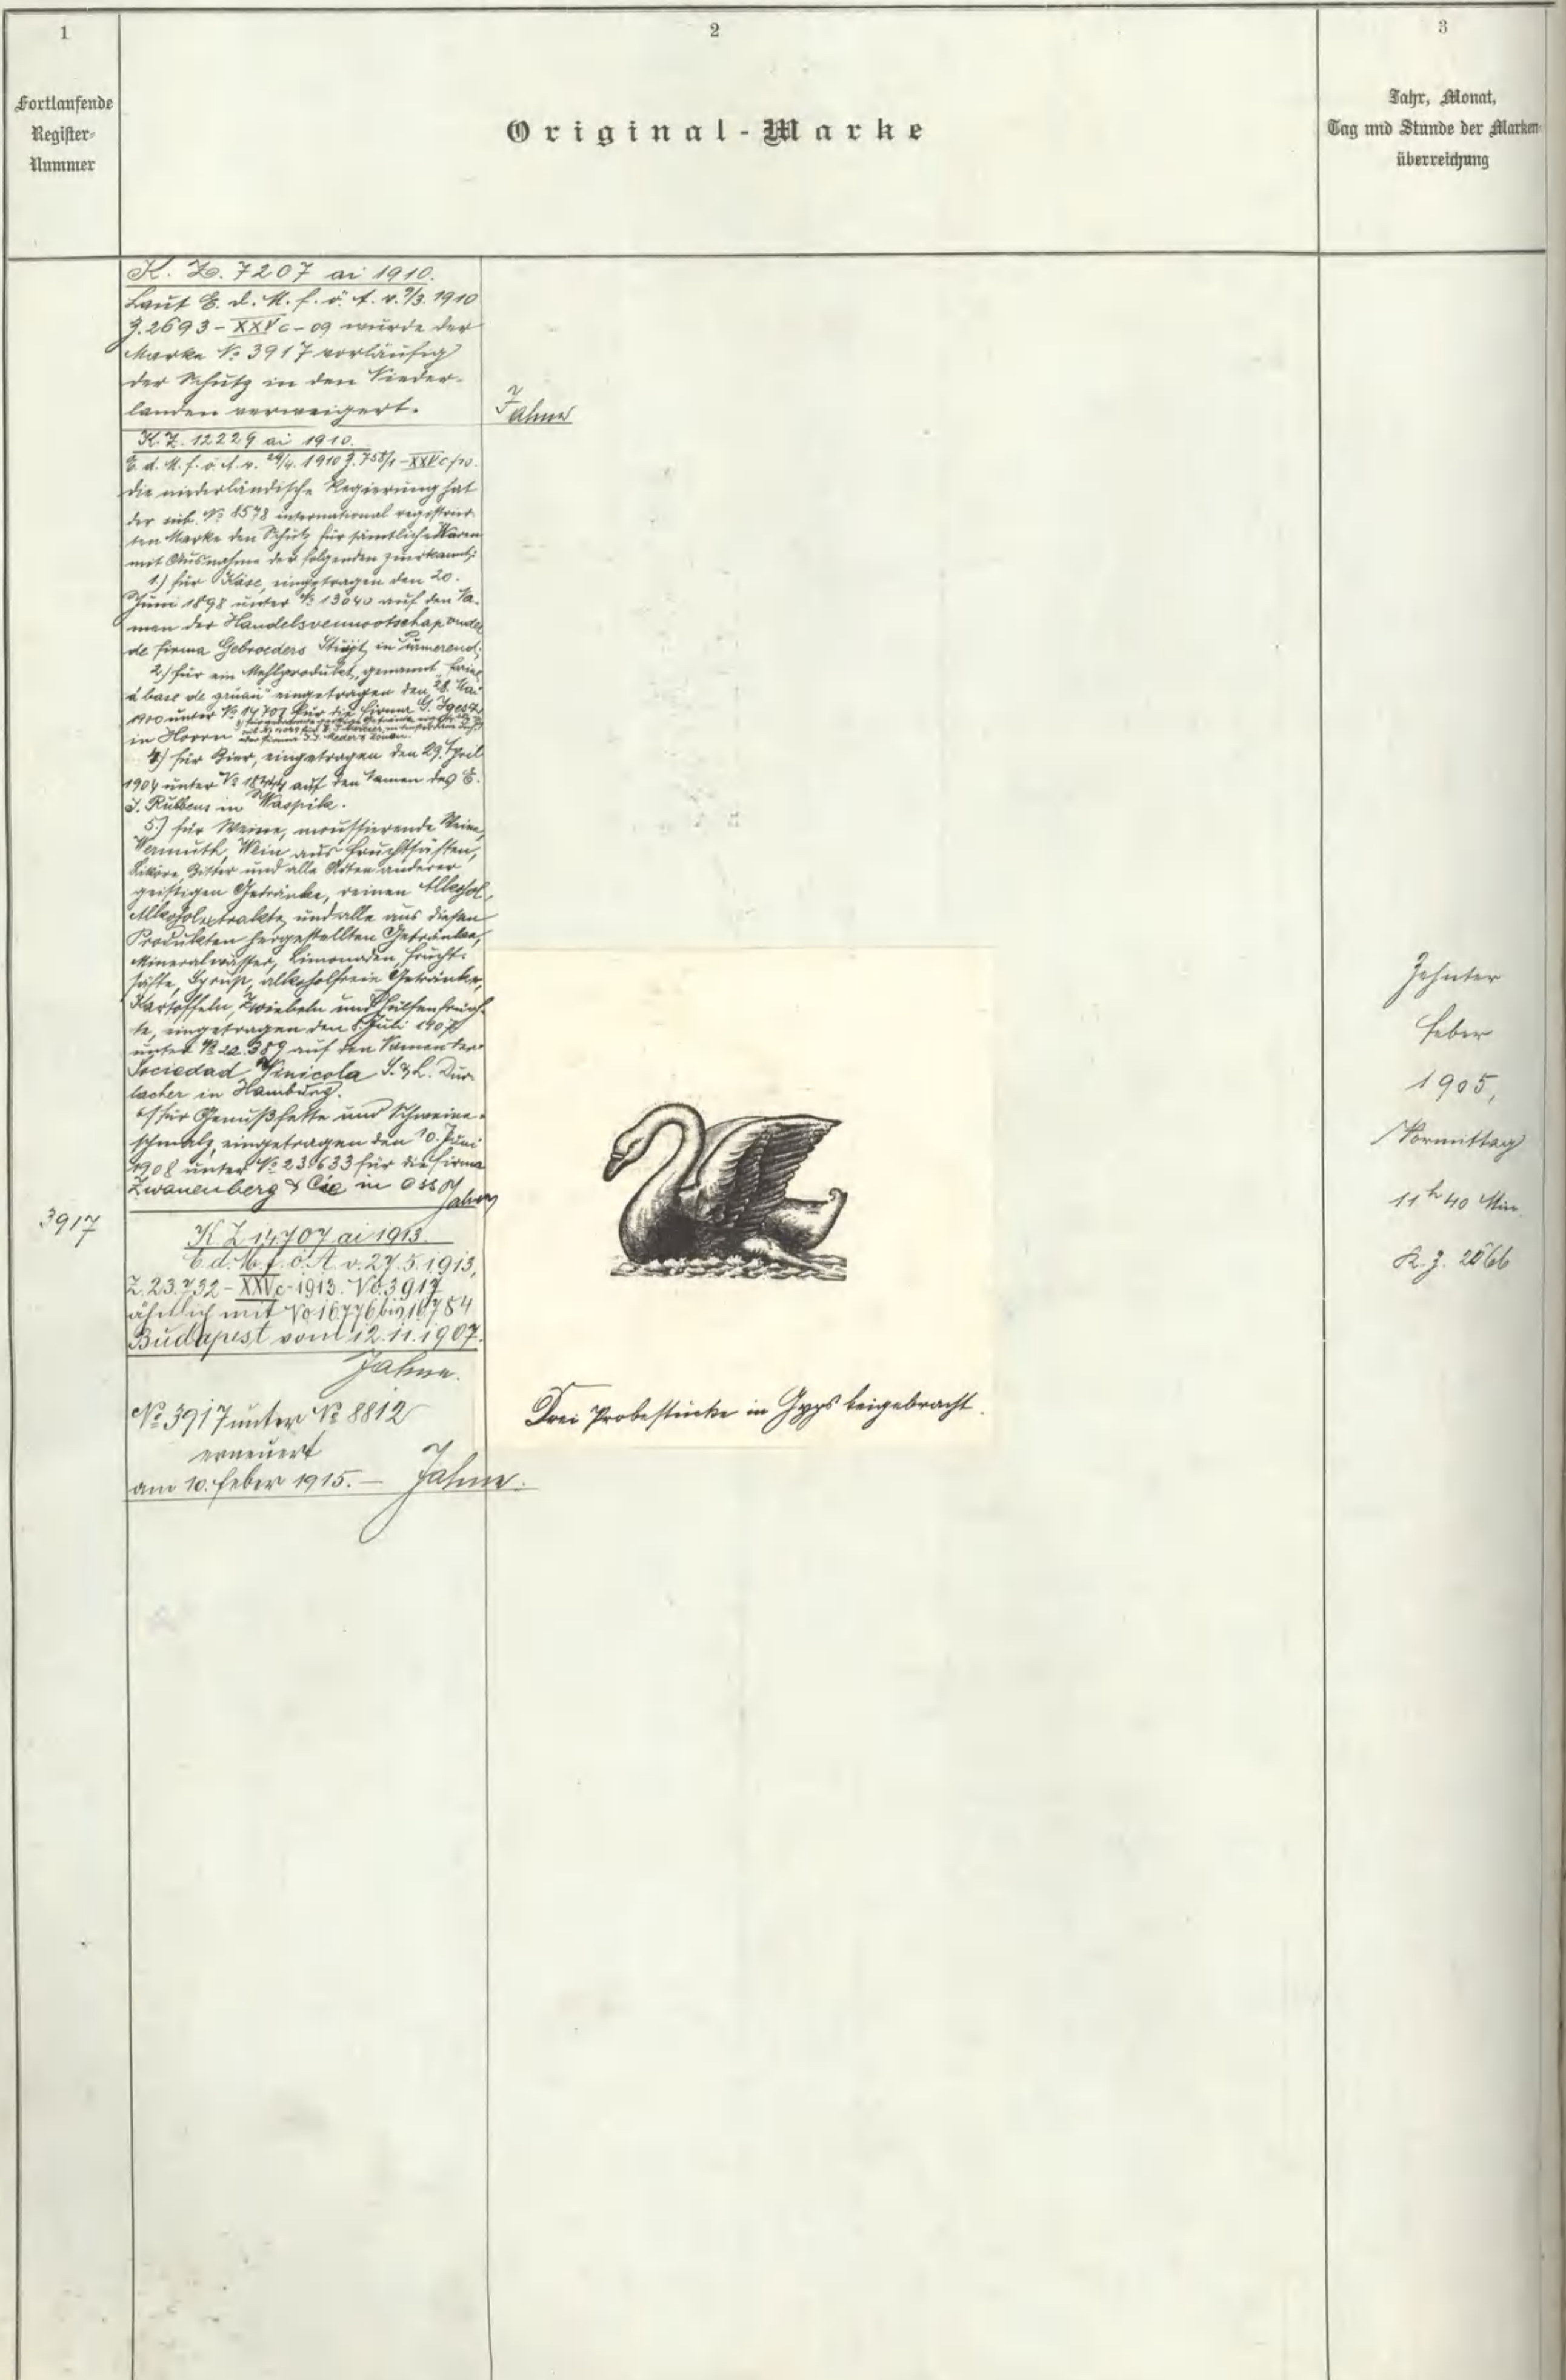 1
Fortlaufende
Register-
Nummer
2
Original-Marke
3
Jahr, Monat,
Tag und Stunde der Marken-
überreichung
K. Z. 7207 ai 1910.
Laut E. d. M. f. ö. A. v. 9/3. 1910
Z. 2693-XXVc-09 wurde der
Marke No 3917 vorläufig
der Schutz in den Nieder-
landen verweigert.
Jahne
K. Z. 12229 ai 1910.
E. d. M. f. ö. A. v. 29/4. 1910 Z.
die niederländische Regierung hat
der sub No 8578 international registrier-
ten Marke den Schutz für sämtliche Waren
mit Ausnahme der folgenden zuerkannt:
1.) für Käse, eingetragen den 20.
Juni 1898 unter No 13040 auf den Na-
men der Handelsvennootschap onder
de firma Gebroeders Stuyt in Purmerend;
2.) für ein Mehlprodukt, genannt
à base de gruau" eingetragen den 28. Mai
1900 unter No 14707 für die Firma G.
in Hoorn
4.) für Bier, eingetragen den 29. April
1904 unter No auf den Namen des E.
J. Rubbens in Waspik.
5.) für Weine, moussierende Weine,
Wermuth, Wein aus Fruchtsäften,
Liköre, Bitter und alle Arten anderer
geistigen Getränke, reinen Alkohol,
Alkoholextrakte und alle aus diesen
Produkten hergestellten Getränke,
Mineralwässer, Limonaden, Frucht-
säfte, Syrup, alkoholfreie Getränke,
Kartoffeln, Zwiebeln und Hülsenfrüch-
te, eingetragen den 8. Juli 1907
unter No 22.389 auf den Namen der
Sociedad Vinicola S. & L. Dur-
lacher in Hamburg.
6.) für Genußfette und Schweine-
schmalz, eingetragen den 10. Juni
1908 unter No 23633 für die Firma
Zwanenberg & Cie in Oss
Jahne
3917
K Z 14707 ai 1913.
E. d. M. f. ö. A v. 27.5.1913,
Z. 23.732-XXVc-1913. No. 3917
ähnlich mit No 16776 bis 16784
Budapest vom 12.11.1907.
Jahne.
No 3917 unter No 8812
erneuert
am 10. Feber 1915. — Jahne.
Drei Probestücke in Gyps beigebracht.
Zehnter
Feber
1905,
Vormittag
11 h 40 Min.
K. Z. 2066